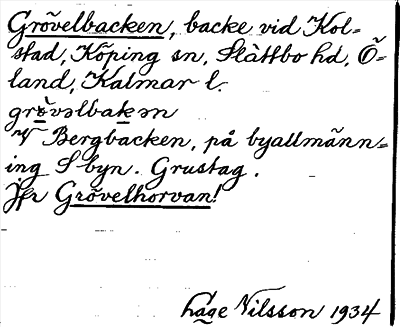 Grövelbacken, backe vid Kol-
stad, Köping sn, Slättbo hd, Ö-
land, Kalmar l.
grö̀vəlbakən
V Bergbacken, på byallmänn-
ing S byn. Grustag.
Jfr Grövelhorvan!
Åge Nilsson 1934